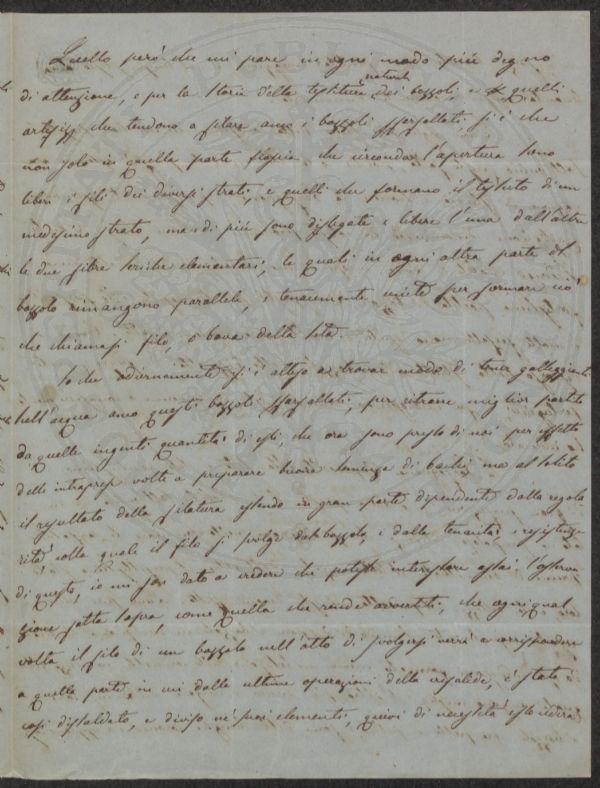 Quello però che mi pare in ogni modo più degno
di attenzione, e per la Storia della testitura naturale dei bozzoli, e quelli
artifizj che tendono a filare anco i bozzoli sfarfallati si è che
non solo in quella parte floscia che circonda l'apertura sono
liberi i fili dei diversi strati, e quelli che formano il tessuto di un
medesimo strato, ma di più sono dislegate e libere l'una dall'altra
le due fibre seriche elementari, le quali in ogni altra parte del
bozzolo rimangono parallele, e tenacemente unite per formare ciò
che chiamasi filo, o bava della seta.
So che odiernamente si è atteso a trovar modo di tener galleggianti
nell'acqua anco questi bozzoli sfarfallati, per ritrarre miglior partito
da quelle ingenti quantità di essi, che ora sono presso di noi per effetto
delle intraprese volte a preparare buona semenza di bachi, ma al solito
il resultato della filatura essendo in gran parte dipendente dalla regola
rità colla quale il filo si svolge dal bozzolo, e dalla tenacità e resistenza
di questo, io mi son dato a credere che potesse interessare assai l'osserva
zione fatta sopra, come quella che rende avvertiti, che ogni qual
volta il filo di un bozzolo nell'atto di svolgersi verrà a corrispondere
a quella parte, in cui dalle ultime operazioni della crisalide, è stato
così dissaldato, e diviso ne' suoi elementi, quivi di necessità esso cederà